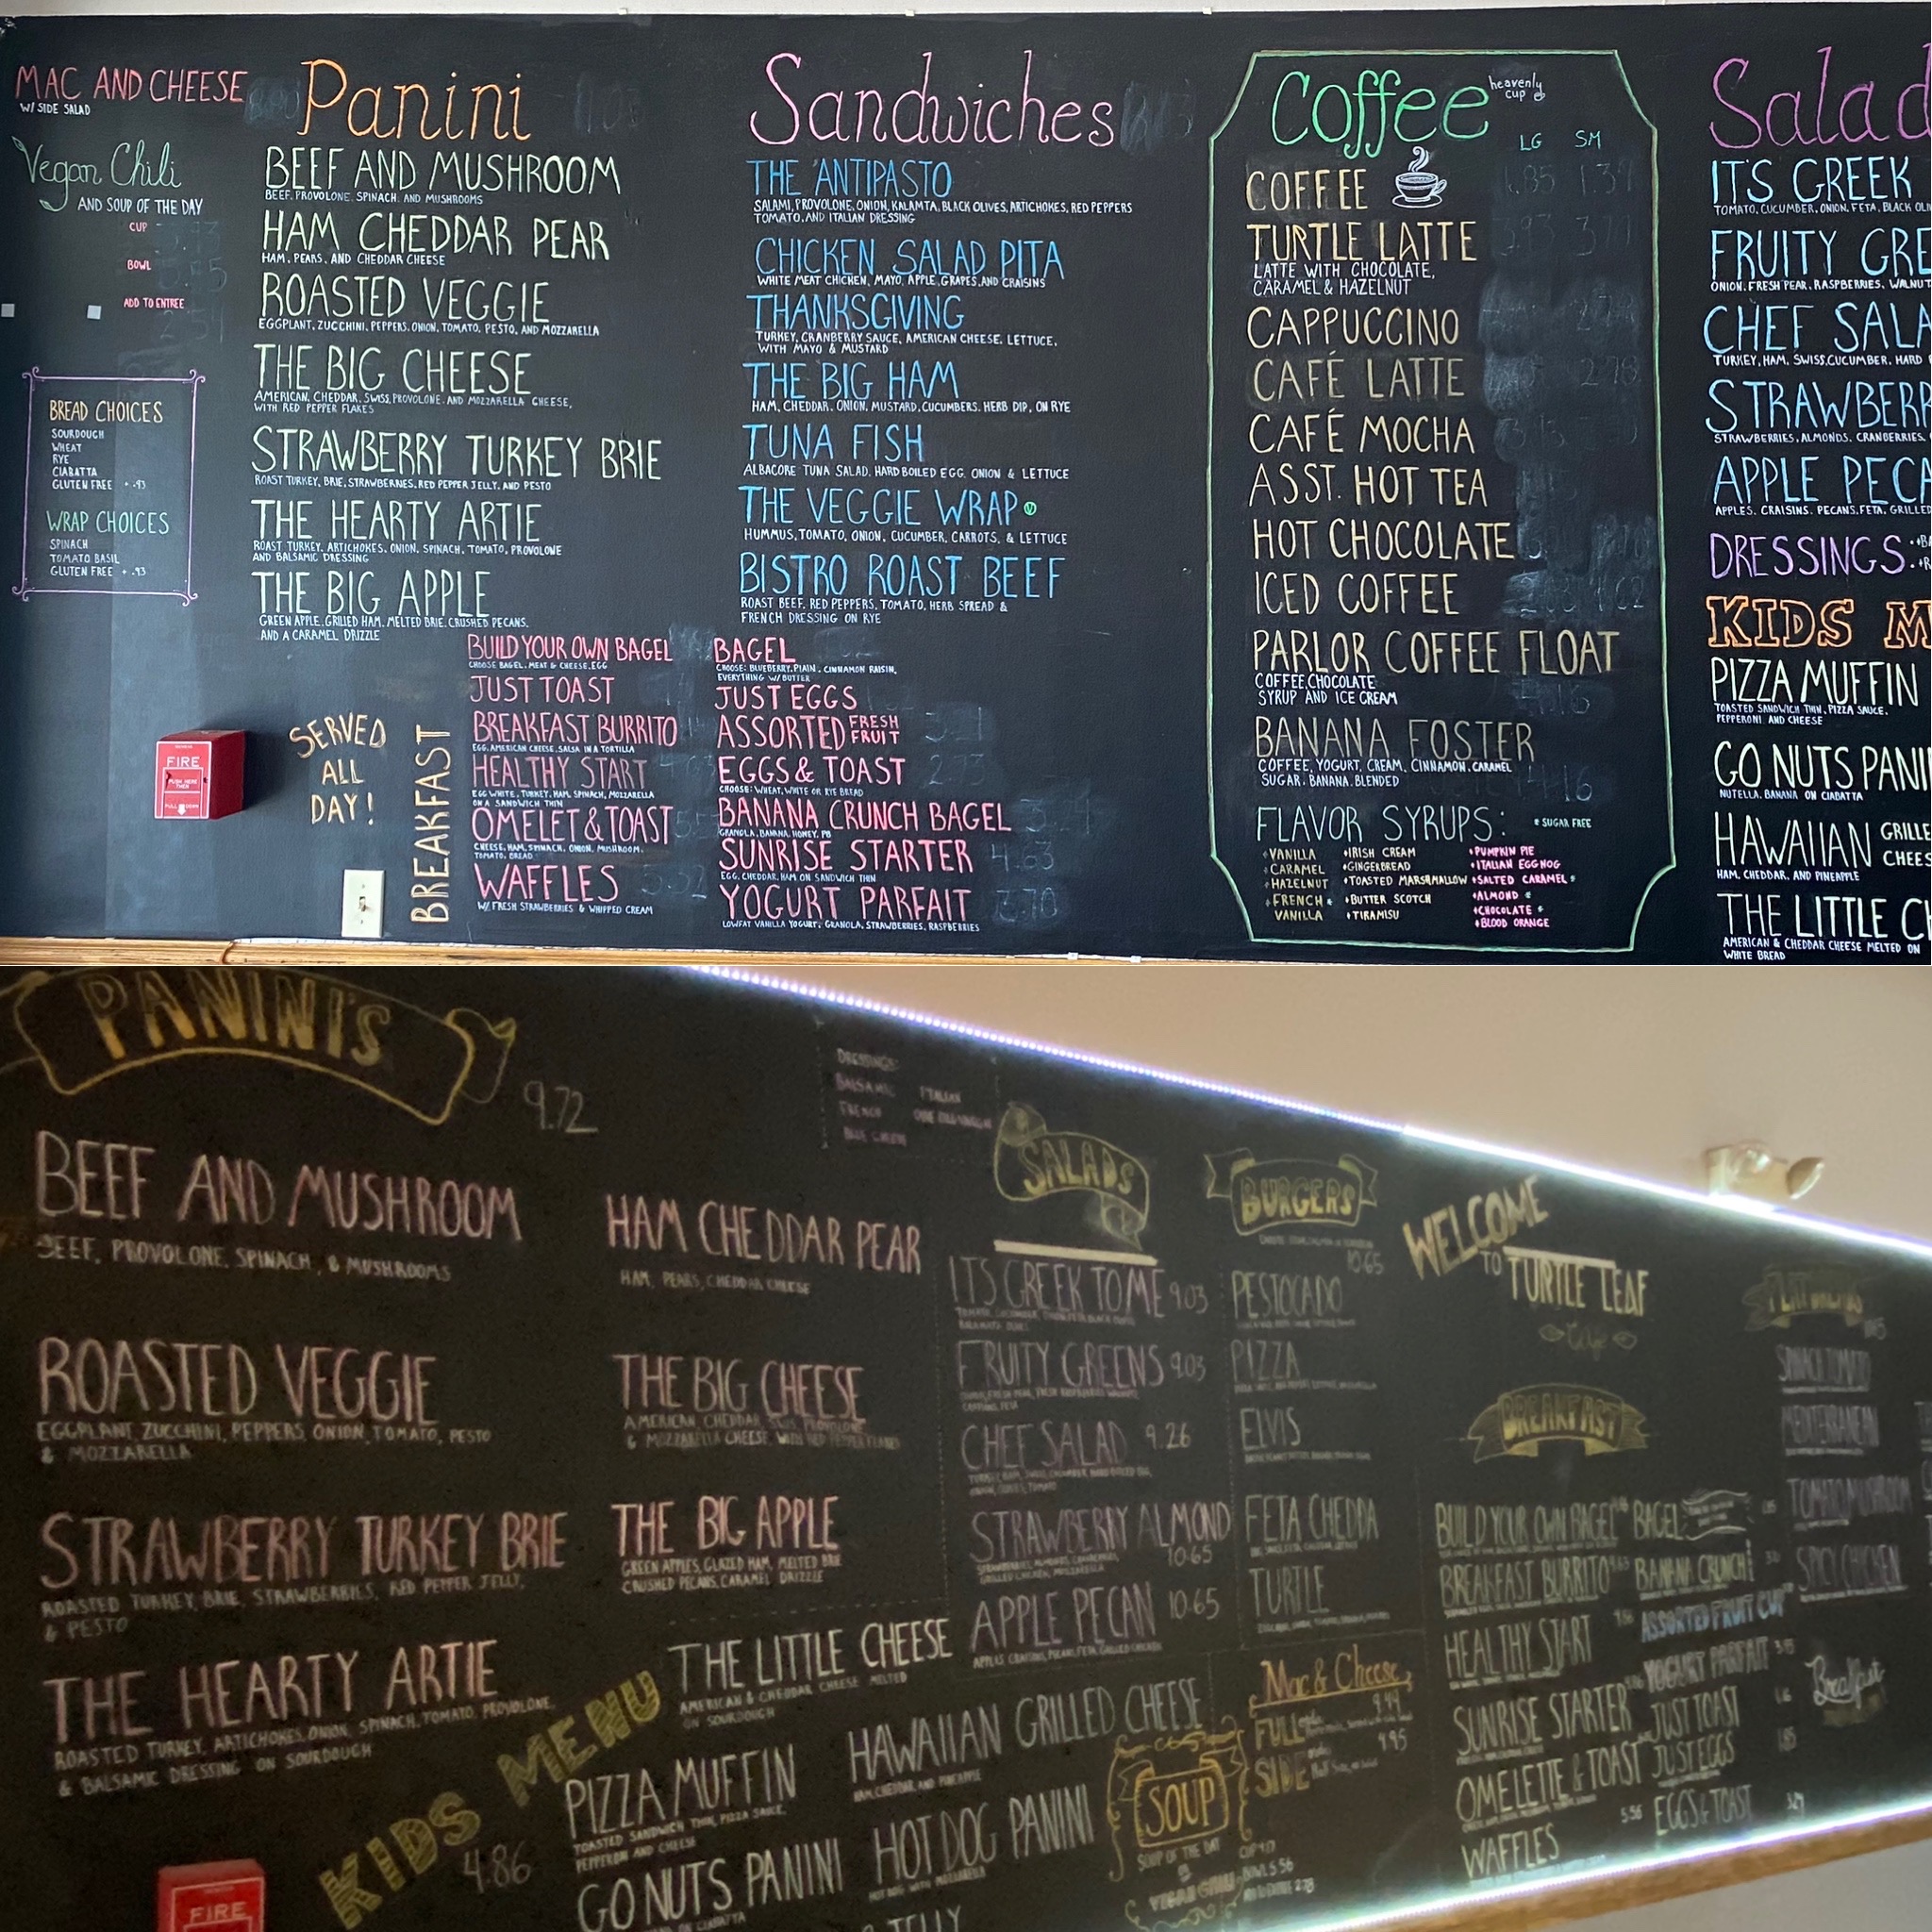 MAC AND CHEESE
W/ SIDE SALAD
Vegan Chili
AND SOUP OF THE DAY
CUP
BOWL
ADD TO ENTREE
BREAD CHOICES
SOURDOUGH
WHEAT
RYE
CIABATTA
GLUTEN FREE + .93
WRAP CHOICES
SPINACH
TOMATO BASIL
GLUTEN FREE + .93
Panini
BEEF AND MUSHROOM
BEEF, PROVOLONE, SPINACH, AND MUSHROOMS
HAM CHEDDAR PEAR
HAM, PEARS, AND CHEDDAR CHEESE
ROASTED VEGGIE
EGGPLANT, ZUCCHINI, PEPPERS, ONION, TOMATO, PESTO, AND MOZZARELLA
THE BIG CHEESE
AMERICAN, CHEDDAR, SWISS, PROVOLONE, AND MOZZARELLA CHEESE,
WITH RED PEPPER FLAKES
STRAWBERRY TURKEY BRIE
ROAST TURKEY, BRIE, STRAWBERRIES, RED PEPPER JELLY, AND PESTO
THE HEARTY ARTIE
ROAST TURKEY, ARTICHOKES, ONION, SPINACH, TOMATO, PROVOLONE
AND BALSAMIC DRESSING
THE BIG APPLE
GREEN APPLE, GRILLED HAM, MELTED BRIE, CRUSHED PECANS,
AND A CARAMEL DRIZZLE
Sandwiches
THE ANTIPASTO
SALAMI, PROVOLONE, ONION, KALAMTA, BLACK OLIVES, ARTICHOKES, RED PEPPERS
TOMATO, AND ITALIAN DRESSING
CHICKEN SALAD PITA
WHITE MEAT CHICKEN, MAYO, APPLE, GRAPES, AND CRAISINS
THANKSGIVING
TURKEY, CRANBERRY SAUCE, AMERICAN CHEESE, LETTUCE,
WITH MAYO & MUSTARD
THE BIG HAM
HAM, CHEDDAR, ONION, MUSTARD, CUCUMBERS, HERB DIP, ON RYE
TUNA FISH
ALBACORE TUNA SALAD, HARD BOILED EGG, ONION & LETTUCE
THE VEGGIE WRAP V
HUMMUS, TOMATO, ONION, CUCUMBER, CARROTS, & LETTUCE
BISTRO ROAST BEEF
ROAST BEEF, RED PEPPERS, TOMATO, HERB SPREAD &
FRENCH DRESSING ON RYE
FIRE
PUSH HERE
THEN
PULL DOWN
SERVED
ALL
DAY!
BREAKFAST
BUILD YOUR OWN BAGEL
CHOOSE BAGEL, MEAT & CHEESE, EGG
JUST TOAST
BREAKFAST BURRITO
EGG, AMERICAN CHEESE, SALSA IN A TORTILLA
HEALTHY START
EGG WHITE, TURKEY, HAM, SPINACH, MOZZARELLA
ON A SANDWICH THIN
OMELET & TOAST
CHEESE, HAM, SPINACH, ONION, MUSHROOM,
TOMATO, BREAD
WAFFLES
W/ FRESH STRAWBERRIES & WHIPPED CREAM
BAGEL
CHOOSE: BLUEBERRY, PLAIN, CINNAMON RAISIN,
EVERYTHING W/ BUTTER
JUST EGGS
ASSORTED FRESH FRUIT
EGGS & TOAST
CHOOSE: WHEAT, WHITE OR RYE BREAD
BANANA CRUNCH BAGEL
GRANOLA, BANANA, HONEY, PB
SUNRISE STARTER 4.63
EGG, CHEDDAR, HAM ON SANDWICH THIN
YOGURT PARFAIT 3.70
LOWFAT VANILLA YOGURT, GRANOLA, STRAWBERRIES, RASPBERRIES
Coffee
heavenly
cup
LG SM
COFFEE
TURTLE LATTE
LATTE WITH CHOCOLATE,
CARAMEL & HAZELNUT
CAPPUCCINO
CAFÉ LATTE
CAFÉ MOCHA
ASST. HOT TEA
HOT CHOCOLATE
ICED COFFEE
PARLOR COFFEE FLOAT
COFFEE, CHOCOLATE
SYRUP AND ICE CREAM
BANANA FOSTER
COFFEE, YOGURT, CREAM, CINNAMON, CARAMEL
SUGAR, BANANA, BLENDED
FLAVOR SYRUPS: * SUGAR FREE
VANILLA
CARAMEL
HAZELNUT
FRENCH *
VANILLA
IRISH CREAM
GINGERBREAD
TOASTED MARSHMALLOW
BUTTER SCOTCH
TIRAMISU
PUMPKIN PIE
ITALIAN EGGNOG
SALTED CARAMEL *
ALMOND *
CHOCOLATE *
BLOOD ORANGE
Salad
ITS GREEK
TOMATO, CUCUMBER, ONION, FETA, BLACK OLI
FRUITY GRE
ONION, FRESH PEAR, RASPBERRIES, WALNUT
CHEF SALA
TURKEY, HAM, SWISS, CUCUMBER, HARD
STRAWBERR
STRAWBERRIES, ALMONDS, CRANBERRIES,
APPLE PECA
APPLES, CRAISINS, PECANS, FETA, GRILLED
DRESSINGS
KIDS M
PIZZA MUFFIN
TOASTED SANDWICH THIN, PIZZA SAUCE,
PEPPERONI AND CHEESE
GO NUTS PANI
NUTELLA, BANANA ON CIABATTA
HAWAIIAN GRILLE
CHEES
HAM, CHEDDAR, AND PINEAPPLE
THE LITTLE CH
AMERICAN & CHEDDAR CHEESE MELTED ON
WHITE BREAD
PANINI'S
9.72
BEEF AND MUSHROOM
BEEF, PROVOLONE, SPINACH, & MUSHROOMS
ROASTED VEGGIE
EGGPLANT, ZUCCHINI, PEPPERS, ONION, TOMATO, PESTO
& MOZZARELLA
STRAWBERRY TURKEY BRIE
ROASTED TURKEY, BRIE, STRAWBERRIES, RED PEPPER JELLY,
& PESTO
THE HEARTY ARTIE
ROASTED TURKEY, ARTICHOKES, ONION, SPINACH, TOMATO, PROVOLONE,
& BALSAMIC DRESSING ON SOURDOUGH
HAM CHEDDAR PEAR
HAM, PEARS, CHEDDAR CHEESE
THE BIG CHEESE
AMERICAN, CHEDDAR, SWISS, PROVOLONE
& MOZZARELLA CHEESE, WITH RED PEPPER FLAKES
THE BIG APPLE
GREEN APPLES, GLAZED HAM, MELTED BRIE
CRUSHED PECANS, CARAMEL DRIZZLE
FIRE
KIDS MENU
4.86
THE LITTLE CHEESE
AMERICAN & CHEDDAR CHEESE MELTED
ON SOURDOUGH
PIZZA MUFFIN
TOASTED SANDWICH THIN, PIZZA SAUCE,
PEPPERONI AND CHEESE
HAWAIIAN GRILLED CHEESE
HAM, CHEDDAR, AND PINEAPPLE
GO NUTS PANINI
HOT DOG PANINI
JELLY
DRESSINGS:
BALSAMIC ITALIAN
FRENCH
BLUE CHEESE
SALADS
ITS GREEK TO ME 9.03
FRUITY GREENS 9.03
CHEF SALAD 9.26
STRAWBERRY ALMOND
10.65
APPLE PECAN 10.65
BURGERS
10.65
PESTOCADO
PIZZA
ELVIS
FETA CHEDDA
TURTLE
Mac & Cheese
FULL 9.49
SIDE 4.95
SOUP
SOUP OF THE DAY
VEGAN CHILI
BOWL 5.56
WELCOME
TO TURTLE LEAF
Cafe
BREAKFAST
BUILD YOUR OWN BAGEL
BREAKFAST BURRITO
HEALTHY START
SUNRISE STARTER
OMELETTE & TOAST
WAFFLES 5.56
BAGEL
BANANA CRUNCH
ASSORTED FRUIT CUP
YOGURT PARFAIT
JUST TOAST
JUST EGGS
EGGS & TOAST
FLATBREADS
SPINACH TOMATO
MEDITERRANEAN
TOMATO MUSHROOM
SPICY CHICKEN
Breakfast